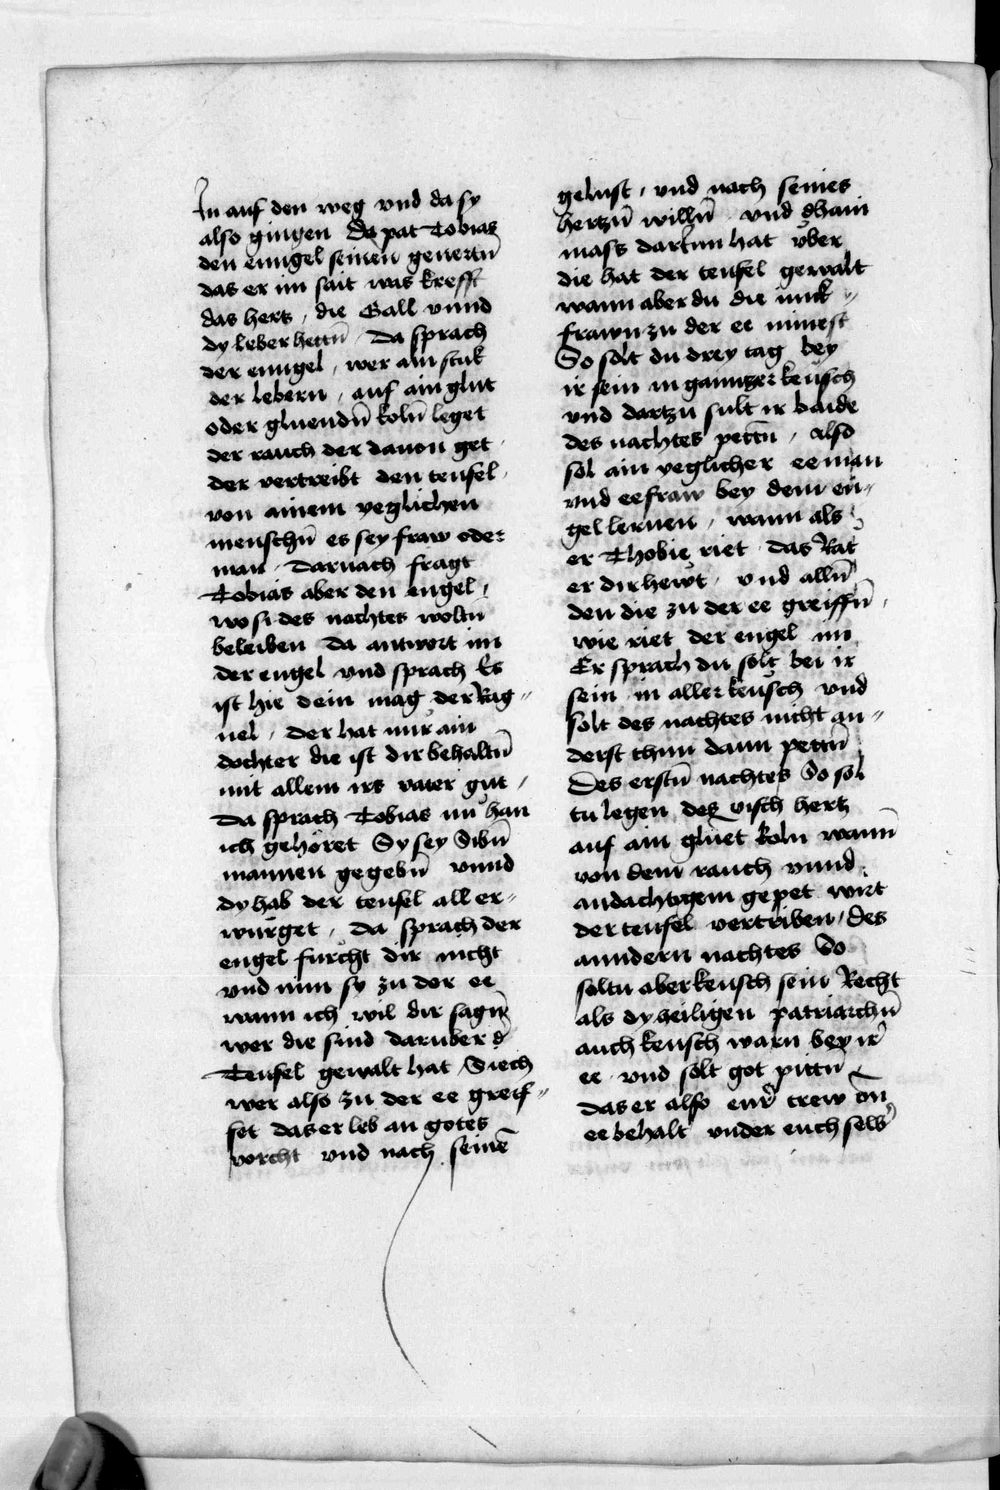 In auf den weg vnd da sy
also gingen Da pat Tobias
den enngel seinen geuertn̄
das er im sait was krefft
das hertz, die Gall vnnd
dy leber hettn̄ Da sprach
der enngel, wer ain stuk
der lebern, auf ain glut
oder gluendn̄ koln̄ leget
der rauch der dauon get
der vertreibt den teufel
von ainem yeglichen
menschn̄ es sey fraw oder
man. Darnach fragt
Tobias aber den engel,
wo si des nachtes woltn
beleiben Da antwort im
der engel vnd sprach Es
ist hie dein mag der Rag⸗
uel, der hat nur ain
dochter die ist dir behaltn̄
mit allem irs vater gut,
Da sprach Tobias nu han
ich gehöret Sy sey Sibn̄
mannen gegebn̄ vnnd
dy hab der teufel all er⸗
würget, Da sprach der
engel furcht dir nicht
vnd nim sy zu der ee
wann ich wil dir sagn̄
wer die sind daruber d̄
Teufel gewalt hat, Siech
wer also zu der ee greif⸗
fet das er leb an gotes
vorcht vnd nach seinē
gelust, vnd nach seines
hertzn̄ willn̄ vnd dhain
mass darinn hat über
die hat der teufel gewalt
wann aber du die iunk⸗
frawn zu der ee nimest
So solt du drey tag bey
ir sein in gannzer keusch
vnd dartzu sult ir baide
des nachtes pettn̄, also
sol ain yeglicher eeman
vnd eefraw bey dem en⸗
gel lernen, wann als
er Thobie riet das Rat
er dir hewt, vnd alln̄
den die zu der ee greiffn̄,
wie riet der engel im
Er sprach du solt bei ir
sein in aller keusch vnd
solt des nachtes nicht an⸗
derst thun dann pettn̄
Des erstn̄ nachtes So sol
tu legen des visch hertz
auf ain glüet koln wann̄
von dem rauch vnnd
andachtigem gepet wirt
der teufel vertriben, des
anndern nachtes So
soltu aber keusch sein Recht
als dy heiligen patriarchn̄
auch keusch warn bey ir
ee vnd solt got pittn̄
das er also eur̄ trew vn̄
ee behalt vnder euch selb̄